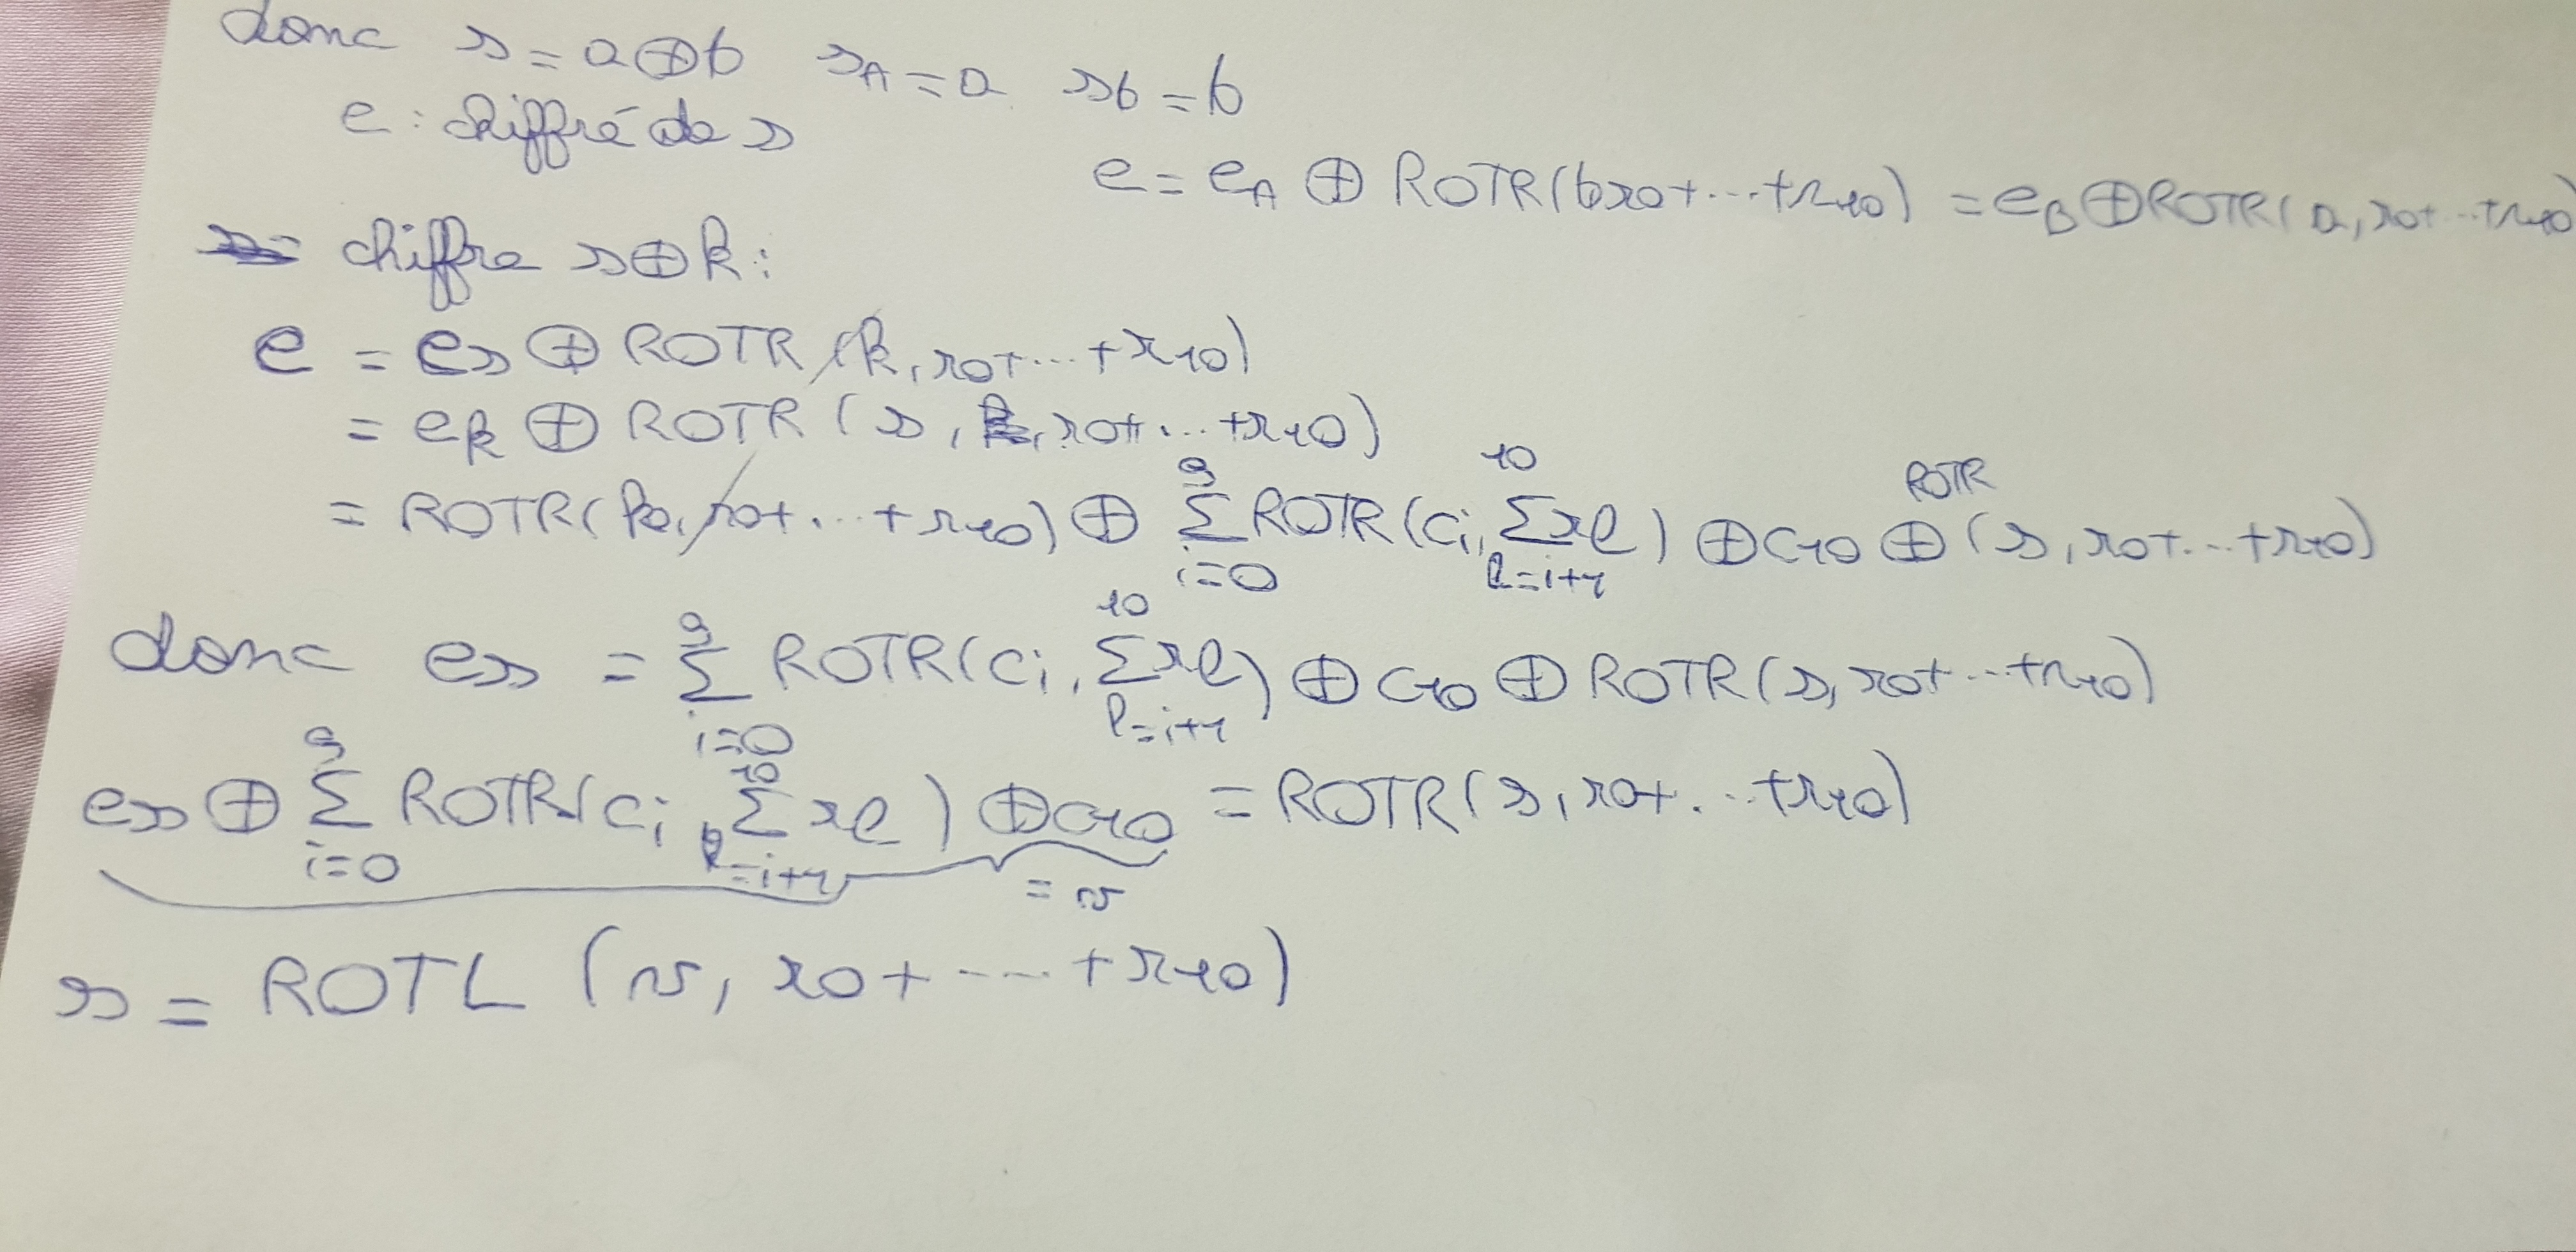 donc s = a ⊕ b s_A = a s_b = b
e : chiffré de s
e = e_A ⊕ ROTR(b r0+...+r10) = e_B ⊕ ROTR(a, r0+...+r10)
chiffre s ⊕ k :
e = es ⊕ ROTR(k, r0+...+r10)
= ek ⊕ ROTR(s, r0+...+r10)
= ROTR(k, r0+...+r10) ⊕ Σ_{i=0}^{9} ROTR(ci, Σ_{l=i+1}^{10} rl) ⊕ c10 ⊕ ROTR(s, r0+...+r10)
donc es = Σ_{i=0}^{9} ROTR(ci, Σ_{l=i+1}^{10} rl) ⊕ c10 ⊕ ROTR(s, r0+...+r10)
es ⊕ Σ_{i=0}^{9} ROTR(ci, Σ_{l=i+1}^{10} rl) ⊕ c10 = ROTR(s, r0+...+r10)
= v
s = ROTL(v, r0+----+r10)